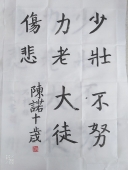 少壯不努
力老大徒
傷悲
陳諾十歲